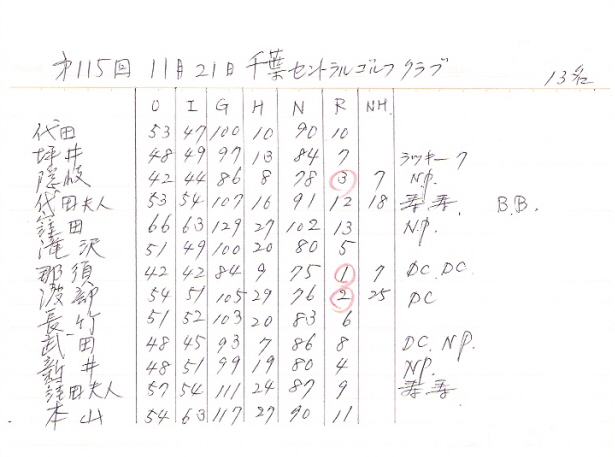 第115回 11月21日 千葉セントラルゴルフクラブ 13名
O I G H N R NH
代田 53 47 100 10 90 10
坪井 48 49 97 13 84 7 ラッキー7
隠岐 42 44 86 8 78 3 7 N.P.
代田夫人 53 54 107 16 91 12 18 B.B.
窪田 66 63 129 27 102 13 N.P.
滝沢 51 49 100 20 80 5
那須 42 42 84 9 75 1 7 DC. DC.
渡部 54 51 105 29 76 2 25 DC
長竹 51 52 103 20 83 6
武田 48 45 93 7 86 8 DC. N.P.
新井 48 51 99 19 80 4 N.P.
窪田夫人 57 54 111 24 87 9
本山 54 63 117 27 90 11